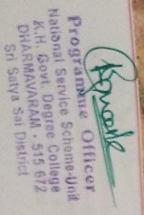 Programme Officer
National Service Scheme-Unit
K.H. Govt. Degree College
DHARMAVARAM - 515 672
Sri Satya Sai District